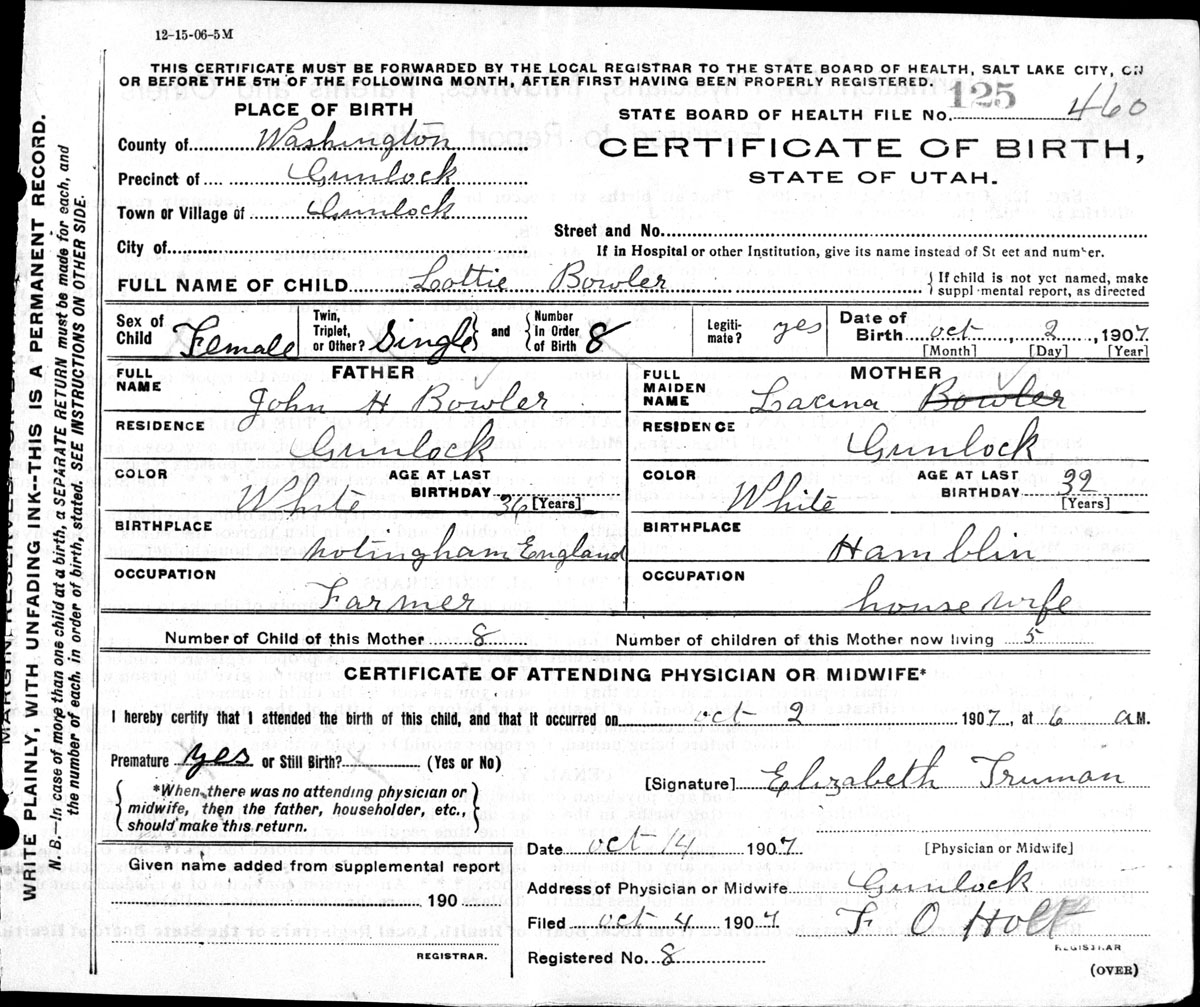 12-15-06-5M
THIS CERTIFICATE MUST BE FORWARDED BY THE LOCAL REGISTRAR TO THE STATE BOARD OF HEALTH, SALT LAKE CITY, ON
OR BEFORE THE 5TH OF THE FOLLOWING MONTH, AFTER FIRST HAVING BEEN PROPERLY REGISTERED.
PLACE OF BIRTH
125
STATE BOARD OF HEALTH FILE NO. 460
County of Washington
CERTIFICATE OF BIRTH,
Precinct of Gunlock
STATE OF UTAH.
Town or Village of Gunlock
Street and No.
City of
If in Hospital or other Institution, give its name instead of St eet and number.
FULL NAME OF CHILD Lottie Bowler
{ If child is not yet named, make
suppl mental report, as directed
Sex of Child Female
Twin, Triplet, or Other? Single } and { Number In Order of Birth 8
Legiti-mate? yes
Date of Birth oct, 2, 1907.
[Month] [Day] [Year]
FATHER
FULL NAME John H Bowler
RESIDENCE Gunlock
COLOR White
AGE AT LAST BIRTHDAY 36 [Years]
BIRTHPLACE Notingham England
OCCUPATION Farmer
MOTHER
FULL MAIDEN NAME Laxina Bowler
RESIDENCE Gunlock
COLOR White
AGE AT LAST BIRTHDAY 32 [Years]
BIRTHPLACE Hamblin
OCCUPATION house wife
Number of Child of this Mother 8 Number of children of this Mother now living 5
CERTIFICATE OF ATTENDING PHYSICIAN OR MIDWIFE*
I hereby certify that I attended the birth of this child, and that it occurred on oct 2 1907, at 6 a M.
Premature yes or Still Birth? (Yes or No)
[Signature] Elizabeth Truman
{ *When there was no attending physician or
midwife, then the father, householder, etc.,
should make this return. }
Date oct 14 1907 [Physician or Midwife]
Given name added from supplemental report
190
REGISTRAR.
Address of Physician or Midwife Gunlock
Filed oct 4 1907. F O Holt
REGISTRAR
Registered No. 8
(OVER)
WRITE PLAINLY, WITH UNFADING INK--THIS IS A PERMANENT RECORD.
N. B.—In case of more than one child at a birth, a SEPARATE RETURN must be made for each, and
the number of each, in order of birth, stated. SEE INSTRUCTIONS ON OTHER SIDE.